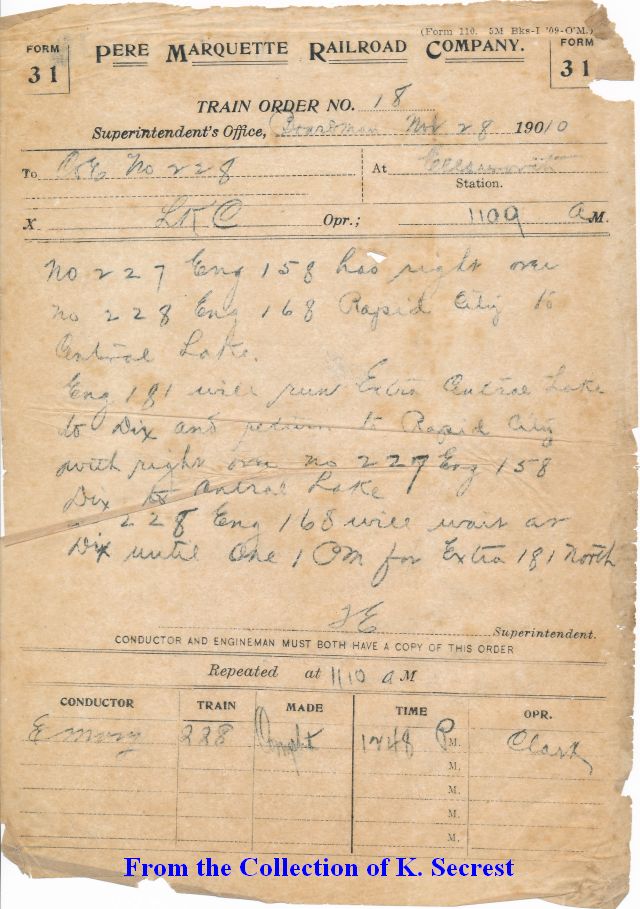 (Form 110. 5M Bks-I '09-O'M.)
FORM 31
PERE MARQUETTE RAILROAD COMPANY.
FORM 31
TRAIN ORDER NO. 18
Superintendent's Office, Boardman Nov 28 19010
To C&E No 228 At
Station.
X LKC Opr.; 1109 A M.
No 227 Eng 158 has right over
no 228 Eng 168 Rapid City to
Central Lake.
Eng 181 will run Extra Central Lake
to Dix and return to Rapid City
with right over no 227 Eng 158
Dix to Central Lake
228 Eng 168 will wait at
Dix until One 1 PM for Extra 181 North
Superintendent.
CONDUCTOR AND ENGINEMAN MUST BOTH HAVE A COPY OF THIS ORDER
Repeated at 1110 a M
CONDUCTOR TRAIN MADE TIME OPR.
Emory 228 1248 P M. Clark
M.
M.
M.
M.
From the Collection of K. Secrest